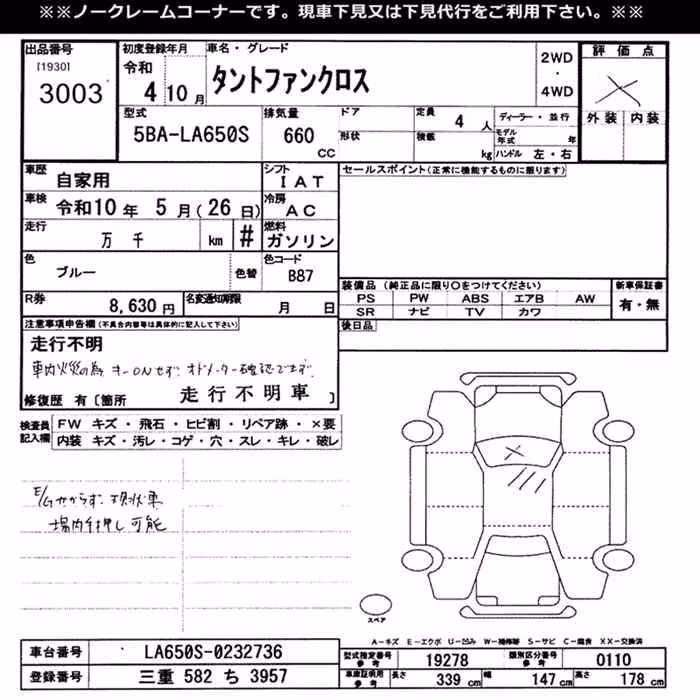 ※※ノークレームコーナーです。現車下見又は下見代行をご利用下さい。※※
出品番号
[1930]
3003
初度登録年月
令和
4 10 月
車名・グレード
タントファンクロス
2WD
・
4WD
評価点
外装 内装
型式
5BA-LA650S
排気量
660
CC
ドア
形状
定員
4 人
積載
kg
ディーラー・並行
モデル年式 年
ハンドル 左・右
車歴
自家用
シフト
IAT
車検
令和10年 5月(26日)
冷房
AC
走行
万 千 km #
燃料
ガソリン
色
ブルー
色替
色コード
B87
R券
8,630 円
名変通知期限
月 日
セールスポイント(正常に機能するものに限ります)
装備品(純正品に限り〇をつけてください)
PS PW ABS エアB AW
SR ナビ TV カワ
新車保証書
有・無
後日品
注意事項申告欄(不具合内容等は具体的に記入して下さい)
走行不明
車内火災の為、キーONせず、オドメーター確認できず
修復歴 有〔箇所 走行不明車 〕
検査員記入欄
FW キズ・飛石・ヒビ割・リペア跡・×要
内装 キズ・汚レ・コゲ・穴・スレ・キレ・破レ
E/Gかからず、現状車
場内手押し可能
スペア
A-キズ E-エクボ U-凹み W-補修跡 S-サビ C-腐食 XX-交換済
車台番号
LA650S-0232736
登録番号
三重 582 ち 3957
型式指定番号
参考
19278
類別区分番号
参考
0110
車庫証明用
参考
長さ
339 cm
幅
147 cm
高さ
178 cm